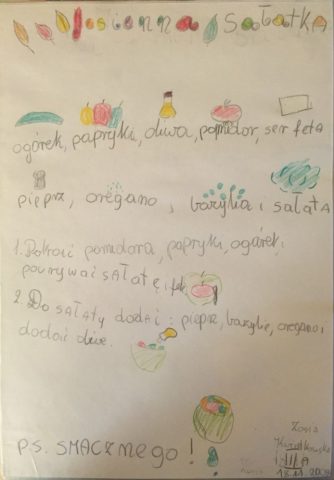 Jesienna Sałatka
ogórek, papryki, oliwa, pomidor, ser feta
pieprz, oregano, bazylia i sałata
1. Pokroić pomidora, papryki, ogórek i
pourywać sałatę i
2. Do sałaty dodać : pieprz, bazylię, oregano i
dodać oliwę.
P.S. SMACZNEGO !
Zosia